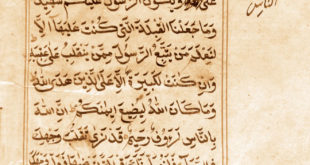 ويكون الرسول عليكم شهيدا
وَمَا جَعَلْنَا الْقِبْلَةَ الَّتِي كُنْتَ عَلَيْهَا إِلَّا
لِنَعْلَمَ مَنْ يَتَّبِعُ الرَّسُولَ مِمَّنْ يَنْقَلِبُ عَلَى عَقِبَيْهِ
وَإِنْ كَانَتْ لَكَبِيرَةً إِلَّا عَلَى الَّذِينَ هَدَى اللهُ
وَمَا كَانَ اللهُ لِيُضِيعَ إِيمَنَكُمْ إِنَّ اللهَ
بِالنَّاسِ لَرَؤُفٌ رَحِيمٌ قَدْ نَرَى تَقَلُّبَ وَجْهِكَ